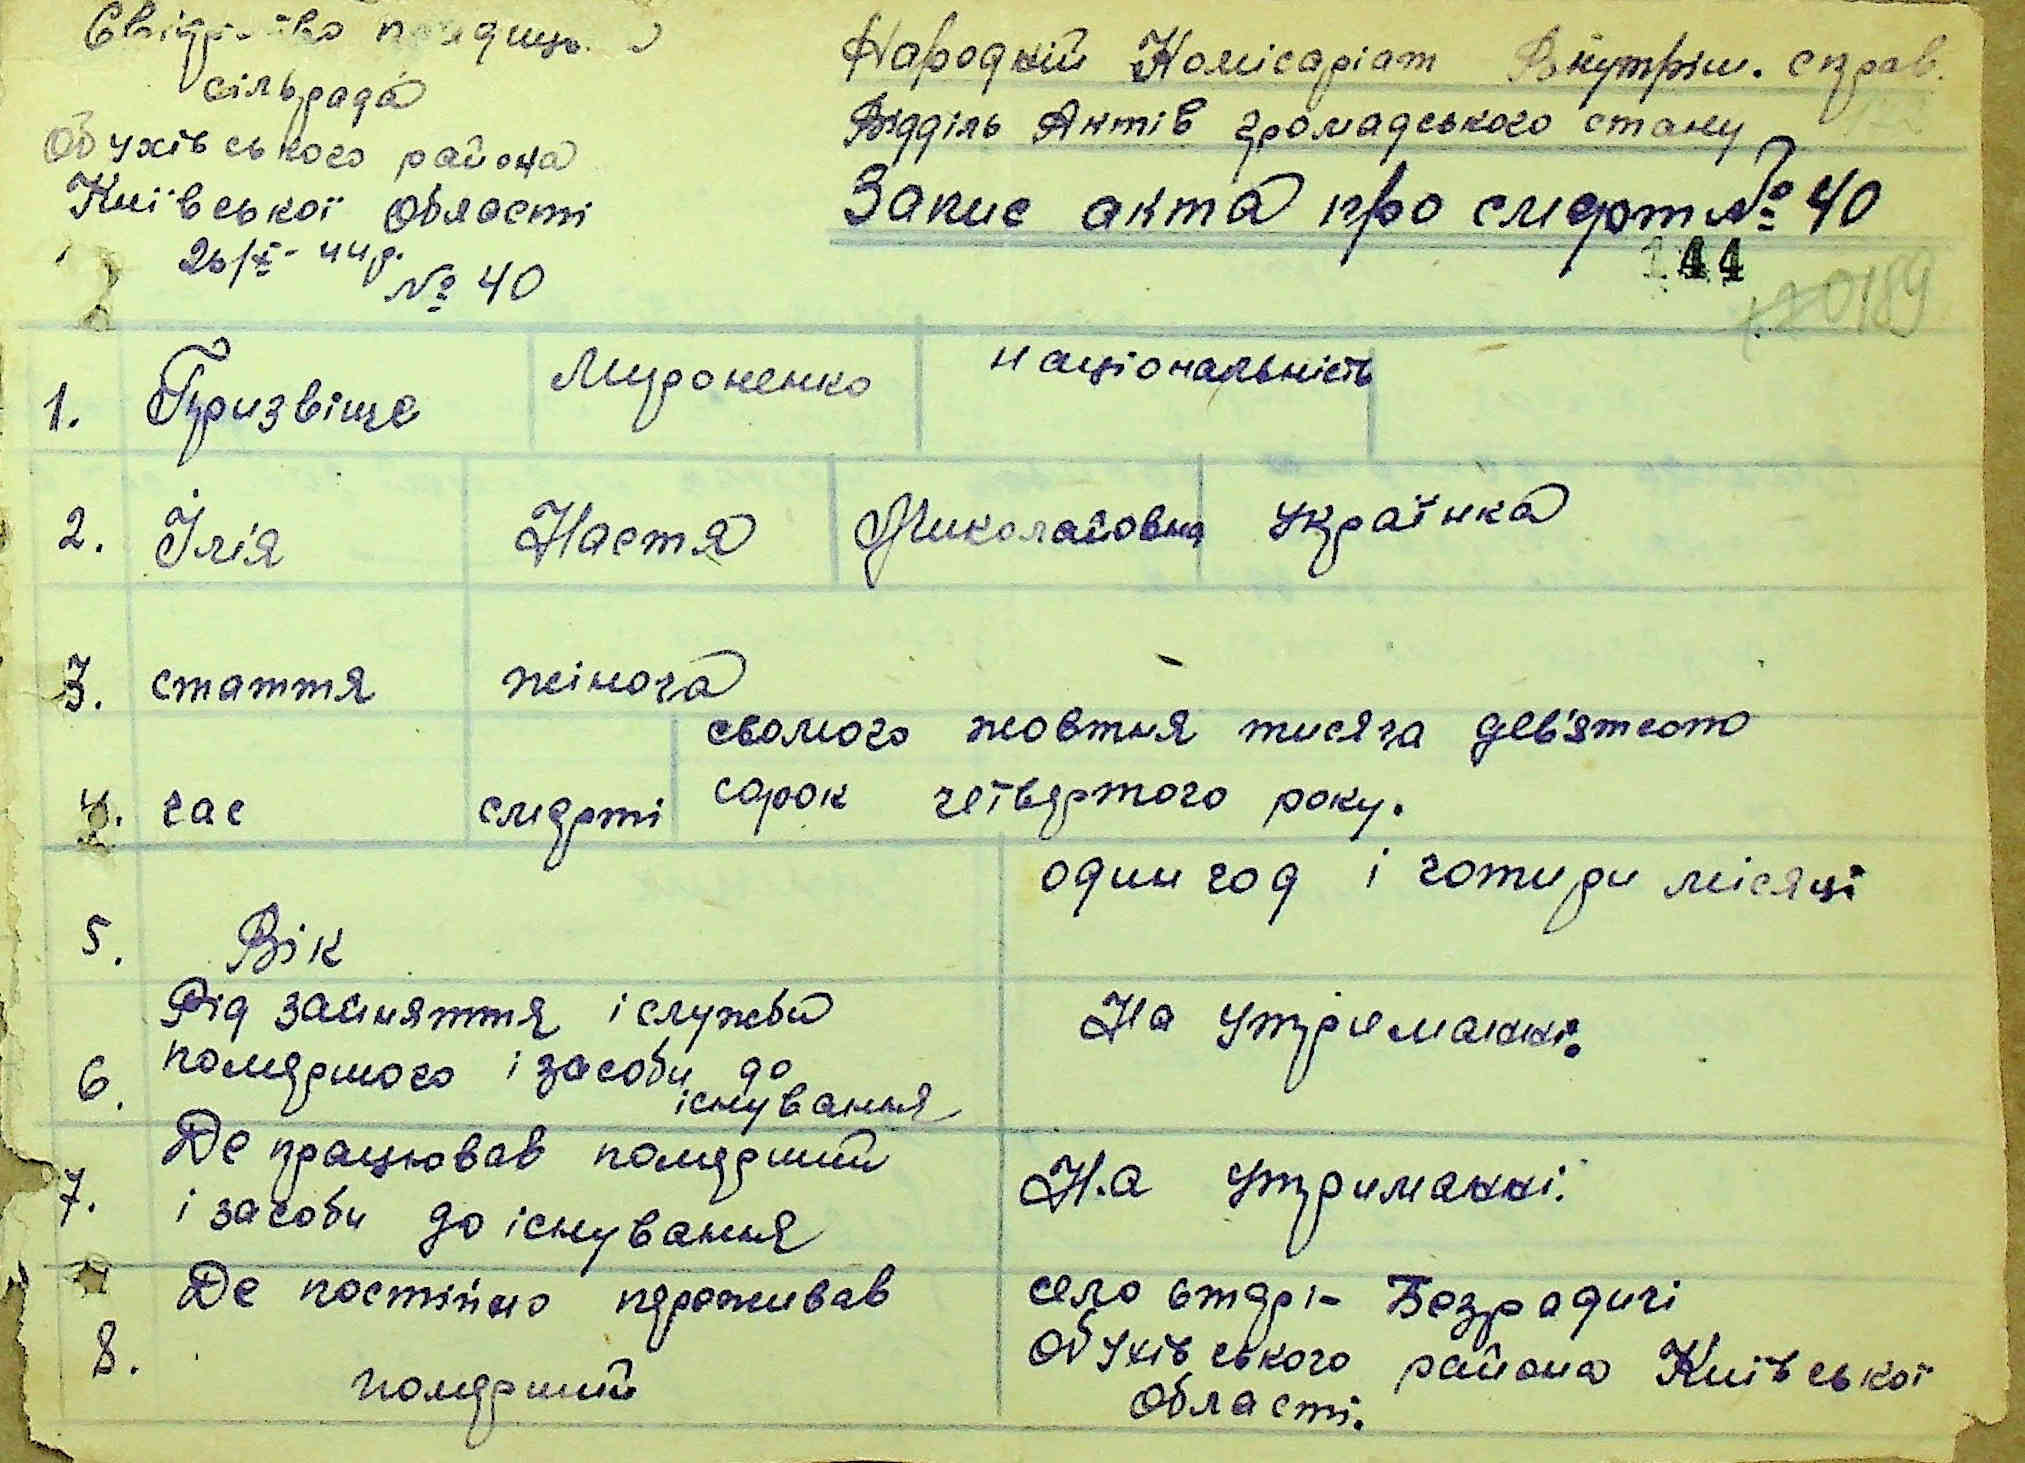 сільрада
Обухівського района
Київської области
26/X- 44р.
№ 40
Народній Комісаріат Внутріш. справ.
Відділь Актів громадського стану
Запис акта про смерт № 40
144
0189
1. Призвіще Мироненко національність
2. Імя Настя Миколаїовна українка
3. стаття жіноча
4. час смерті сьомого жовтня тисяча дев'ятсото
сорок четвертого року.
5. Вік один год і чотири місяці
Рід зайняття і служби
6. помершого і засоби до існування На утриманні.
Де працював померший
7. і засоби до існування На утриманні.
8. Де постійно проживав
померший
село старі- Безрадичі
Обухівського района Київської
области.